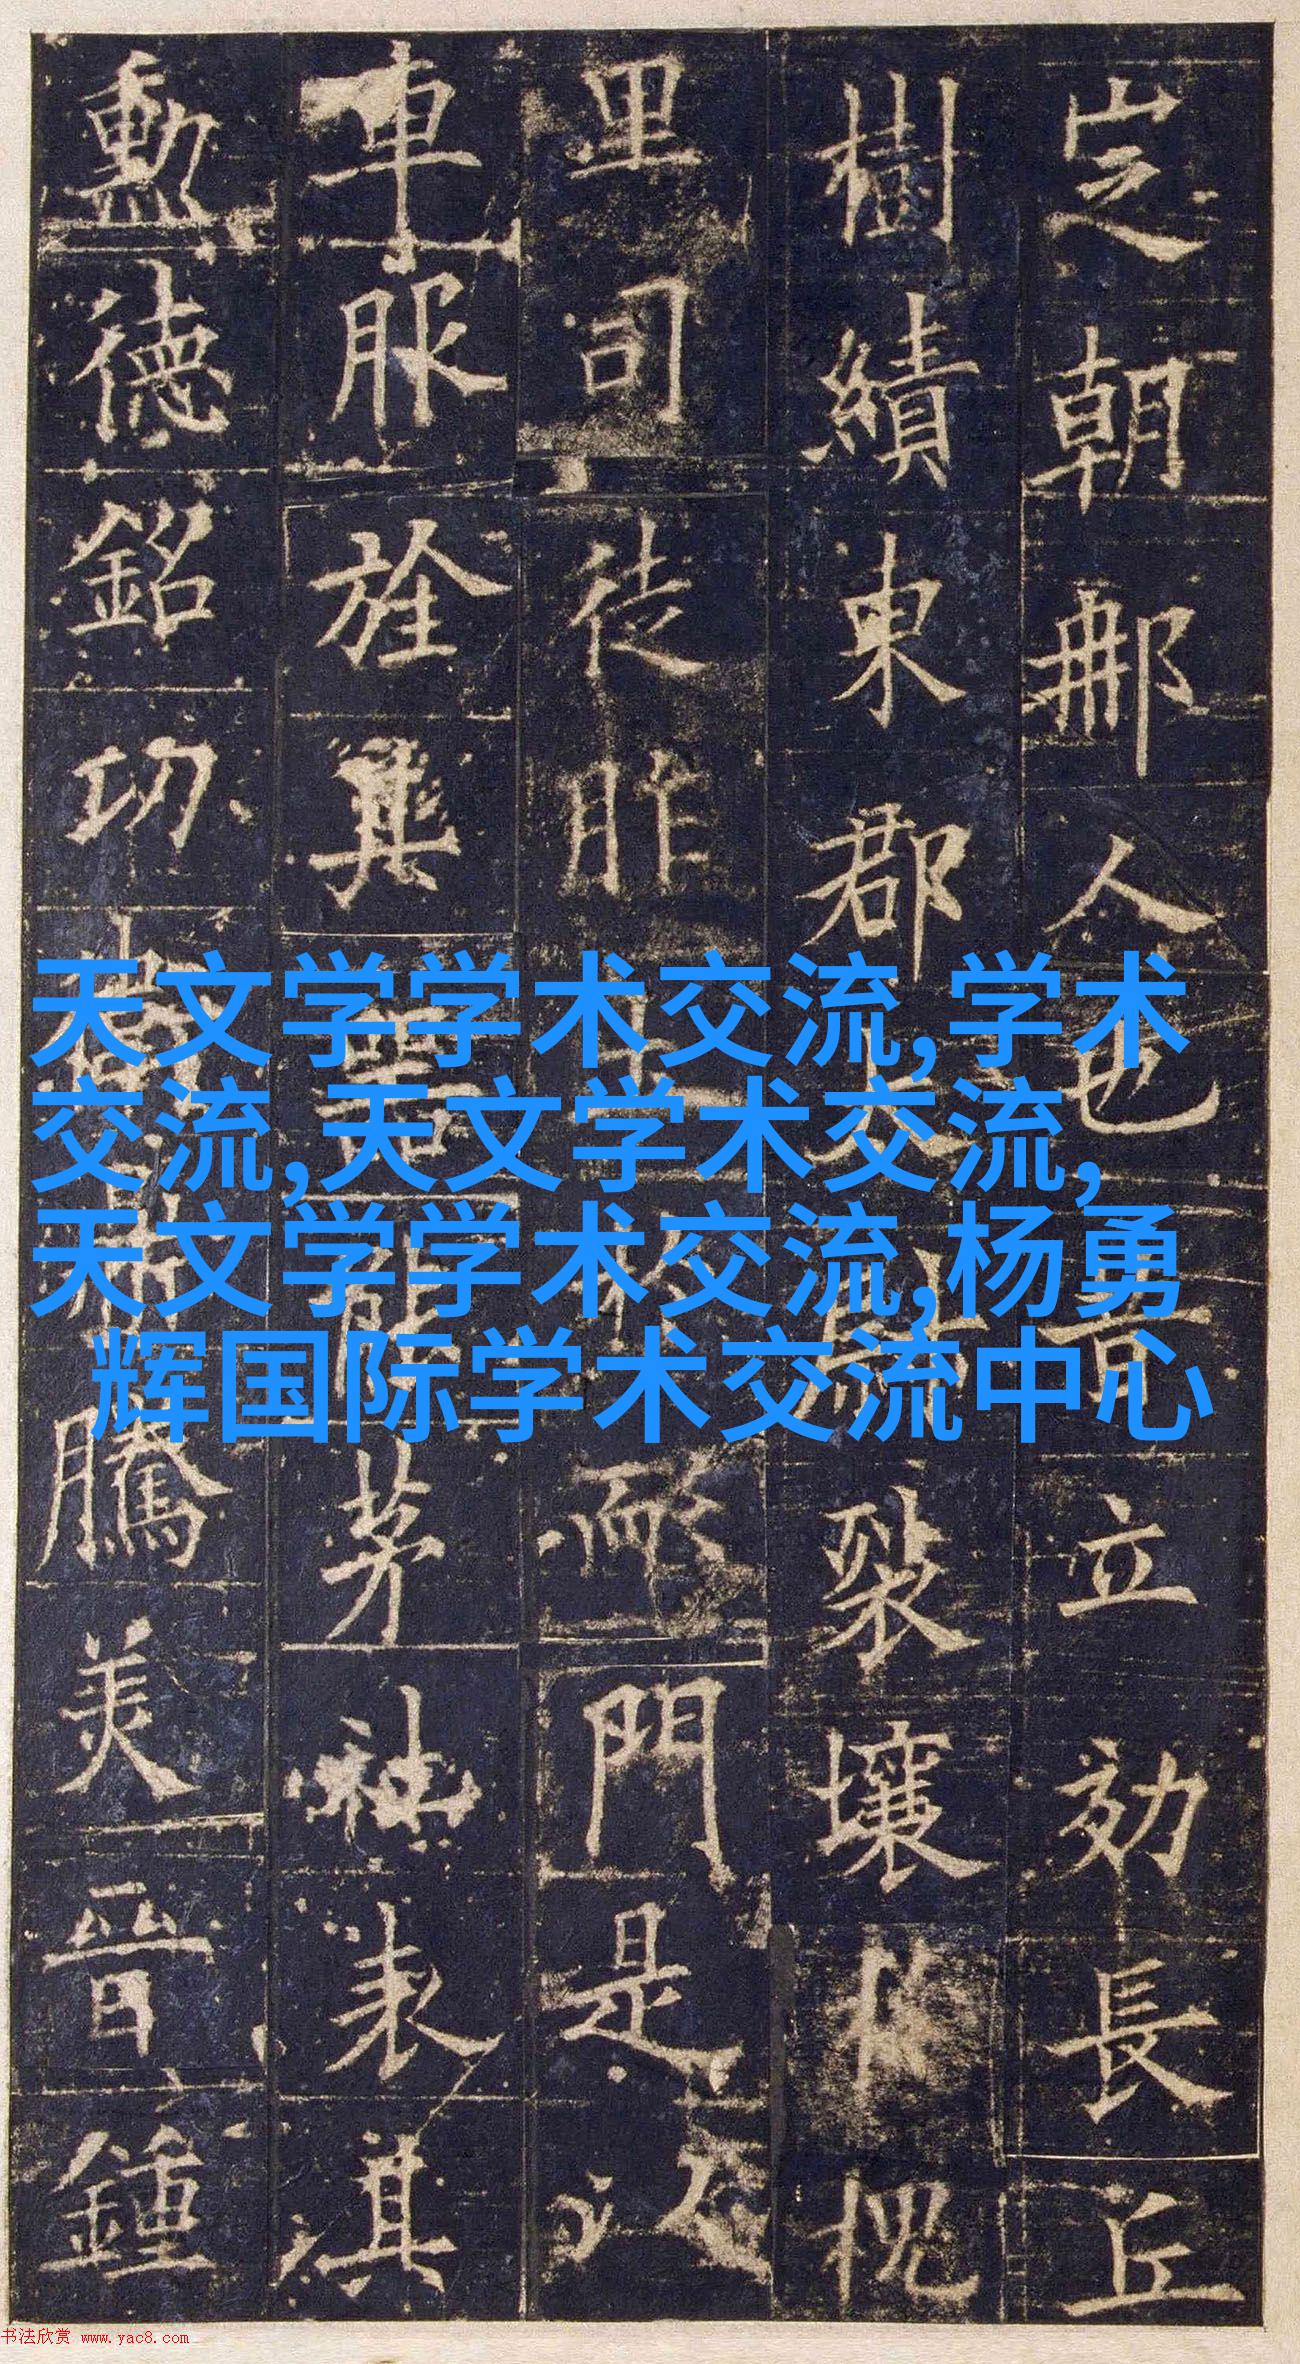 之朝那人也立効長丘
樹績東郡裂壤槐
里司徒胙而門是
車服旌其茅社表淇
勳德銘功騰美晉鍾
天文学学术交流,学术
交流,天文学术交流,
天文学学术交流,杨勇
辉国际学术交流中心
书法欣赏 www.yac8.com